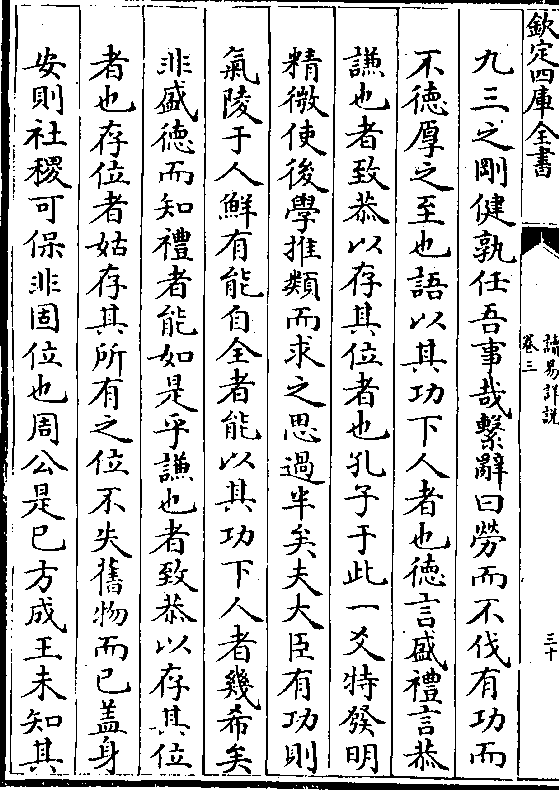 欽定四庫全書
讀易詳說
卷三
三十
九三之剛健孰任吾事哉繫辭曰勞而不伐有功而
不德厚之至也語以其功下人者也德言盛禮言恭
謙也者致恭以存其位者也孔子于此一爻特發明
精微使後學推類而求之思過半矣夫大臣有功則
氣陵于人鮮有能自全者能以其功下人者幾希矣
非盛德而知禮者能如是乎謙也者致恭以存其位
者也存位者姑存其所有之位不失舊物而已盖身
安則社稷可保非固位也周公是已方成王未知其